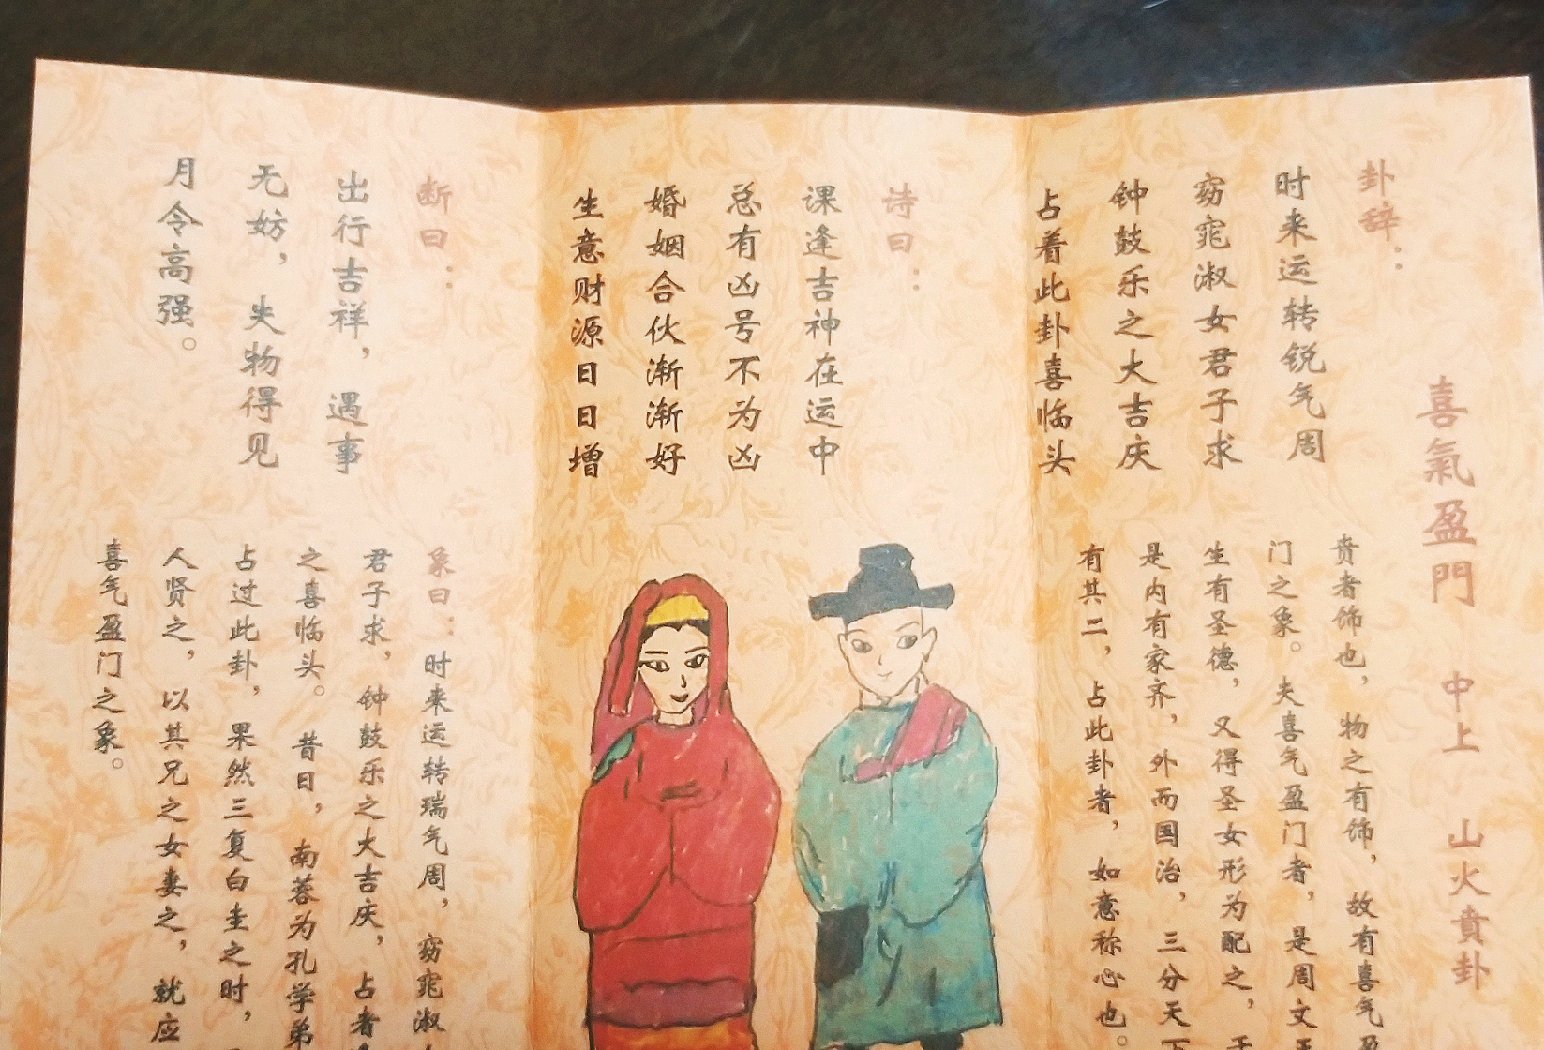 喜氣盈門 中上 山火賁卦
卦辞：
时来运转锐气周
窈窕淑女君子求
钟鼓乐之大吉庆
占着此卦喜临头
贲者饰也，物之有饰，故有喜气盈
门之象。夫喜气盈门者，是周文王
生有圣德，又得圣女形为配之，于
是内有家齐，外而国治，三分天下
有其二，占此卦者，如意称心也。
诗曰：
课逢吉神在运中
总有凶号不为凶
婚姻合伙渐渐好
生意财源日日增
断曰：
出行吉祥，遇事
无妨，失物得见
月令高强。
象曰：时来运转瑞气周，窈窕淑
君子求，钟鼓乐之大吉庆，占者
之喜临头。昔日，南蓉为孔学弟
占过此卦，果然三复白圭之时，
人贤之，以其兄之女妻之，就应
喜气盈门之象。